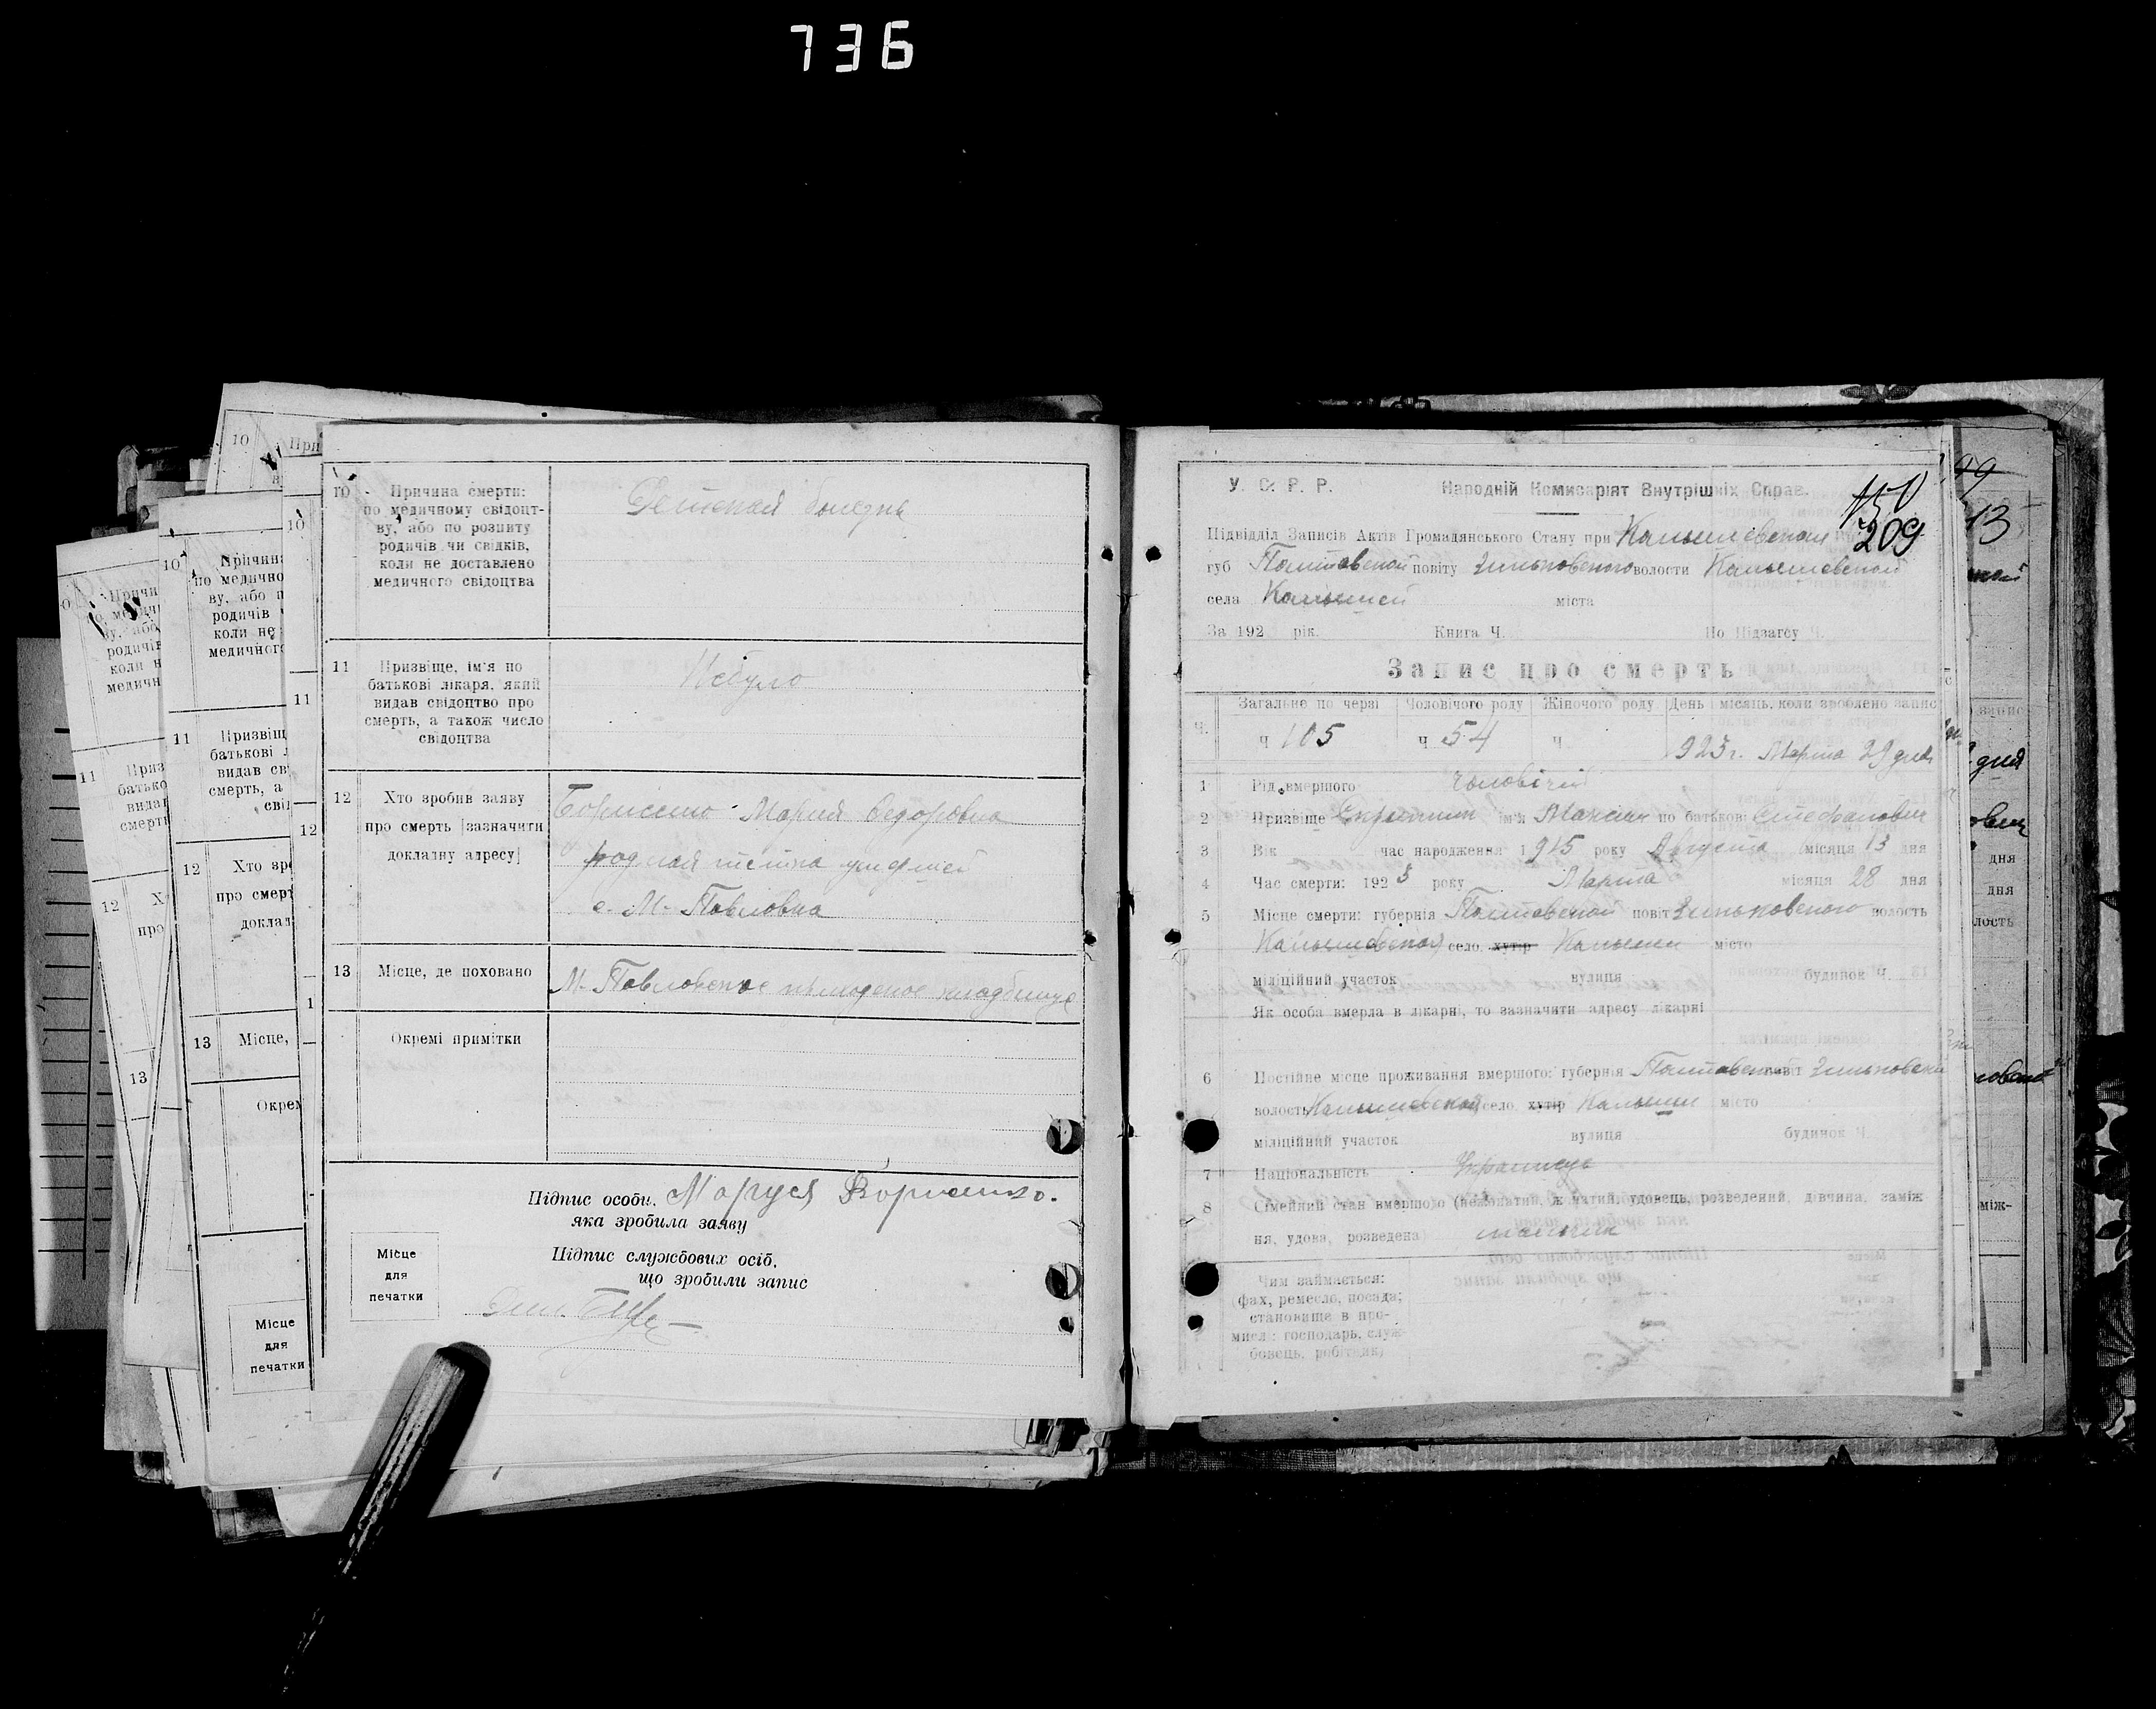 736
10
Причина смерти:
по медичному свідоцт-
ву, або по розпиту
родичів чи свідків,
коли не доставлено
медичного свідоцтва
Детская болезнь
11
Призвіще, ім'я по
батькові лікаря, який
видав свідоцтво про
смерть, а також число
свідоцтва
Небуло
12
Хто зробив заяву
про смерть [зазначити
докладну адресу]
Борисенко Мария Федоровна
родная тетка умершей
с. М. Павловка
13
Місце, де поховано
М. Павловское кладбище
Окремі примітки
Підпис особи, Маруся Борисенко.
яка зробила заяву
Підпис службових осіб,
що зробили запис
Місце
для
печатки
У. С. Р. Р. Народній Комисаріят Внутрішніх Справ.
150
209
Підвідділ Записів Актів Громадянського Стану при Камышевской
губ Полтавской повіту Зиньковского волости Камышевской
села Камышей міста
За 192 рік. Книга Ч. По Підзагсу Ч.
Запис про смерть
Загальне по черзі Чоловічого роду Жіночого роду День і місяць, коли зроблено запис
Ч. ч 105 ч 54 ч 923 г. Марта 29 дня
1 Рід вмершого чоловічий
2 Призвіще ім'я Максим по батькові Стефанович
3 Вік час народження 1915 року Августа місяця 13 дня
4 Час смерти: 1923 року Марта місяця 28 дня
5 Місце смерти: губернія Полтавской повіт Зиньковского волость
Камышевской село, хутір Камыши місто
міліційний участок вулиця будинок Ч.
Як особа вмерла в лікарні, то зазначити адресу лікарні
6 Постійне місце проживання вмершого: губернія Полтавской повіт Зиньковский
волость Камышевской село, хутір Камыши місто
міліційний участок вулиця будинок Ч
7 Національність Украинец
8 Сімейний стан вмершого (нежонатий, жонатий, удовець, розведений, дівчина, заміж
ня, удова, розведена)
Чим займається:
(фах, ремесло, посада;
становище в про-
мислі: господарь, служ-
бовець, робітник)